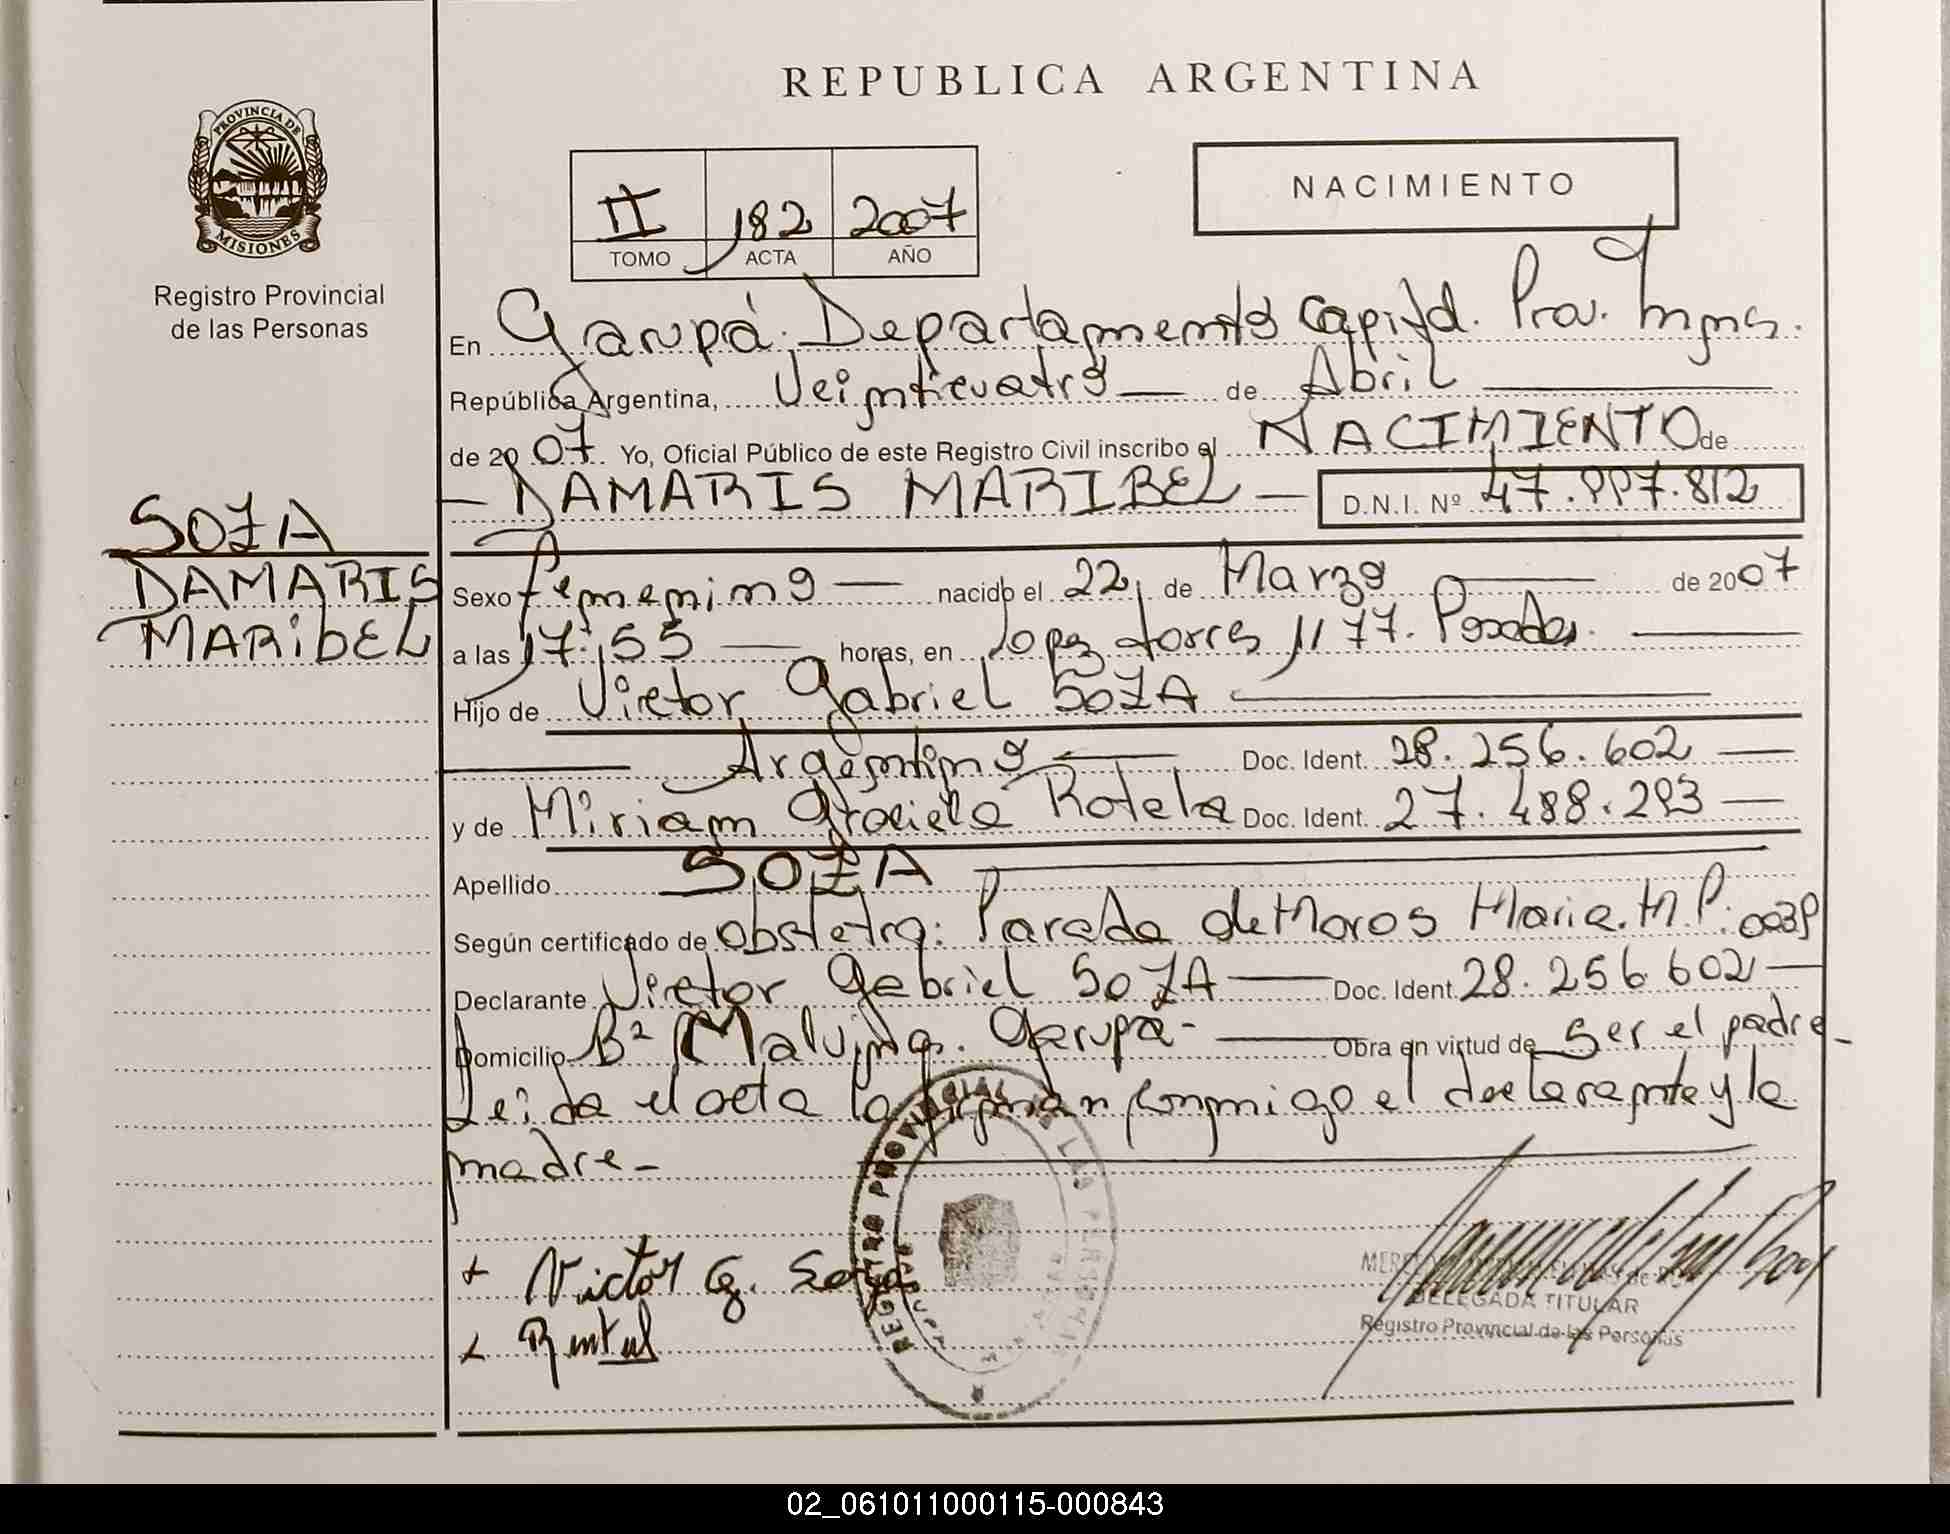 PROVINCIA DE
MISIONES
Registro Provincial
de las Personas
SOZA
DAMARIS
MARibEL
REPUBLICA ARGENTINA
II 182 2007
TOMO ACTA AÑO
NACIMIENTO
En Garupá. Departamento Capital. Prov. Mnes.
República Argentina, Veinticuatro de Abril
de 2007 Yo, Oficial Público de este Registro Civil inscribo el NACIMIENTO de
DAMARIS MARIBEL D.N.I. Nº 47.997.812
Sexo femenino nacido el 22 de Marzo de 2007
a las 17:55 horas, en Lopez torres 1177. Posadas.
Hijo de Victor Gabriel SOZA
Argentino Doc. Ident. 28.256.602
y de Miriam Graciela Rotela Doc. Ident. 27.488.293
Apellido SOZA
Según certificado de obstetra: Parada de Moros Maria. M.P: 0039
Declarante Victor Gabriel SOZA Doc. Ident. 28.256.602
Domicilio Bº Malvina. Garupa- Obra en virtud de Ser el padre-
Leida el acta la firman conmigo el declarante y la
madre-
+ Victor G. Soza
REGISTRO PROVINCIAL DE LAS PERSONAS
DELEGADA TITULAR
Registro Provincial de las Personas
02_061011000115-000843